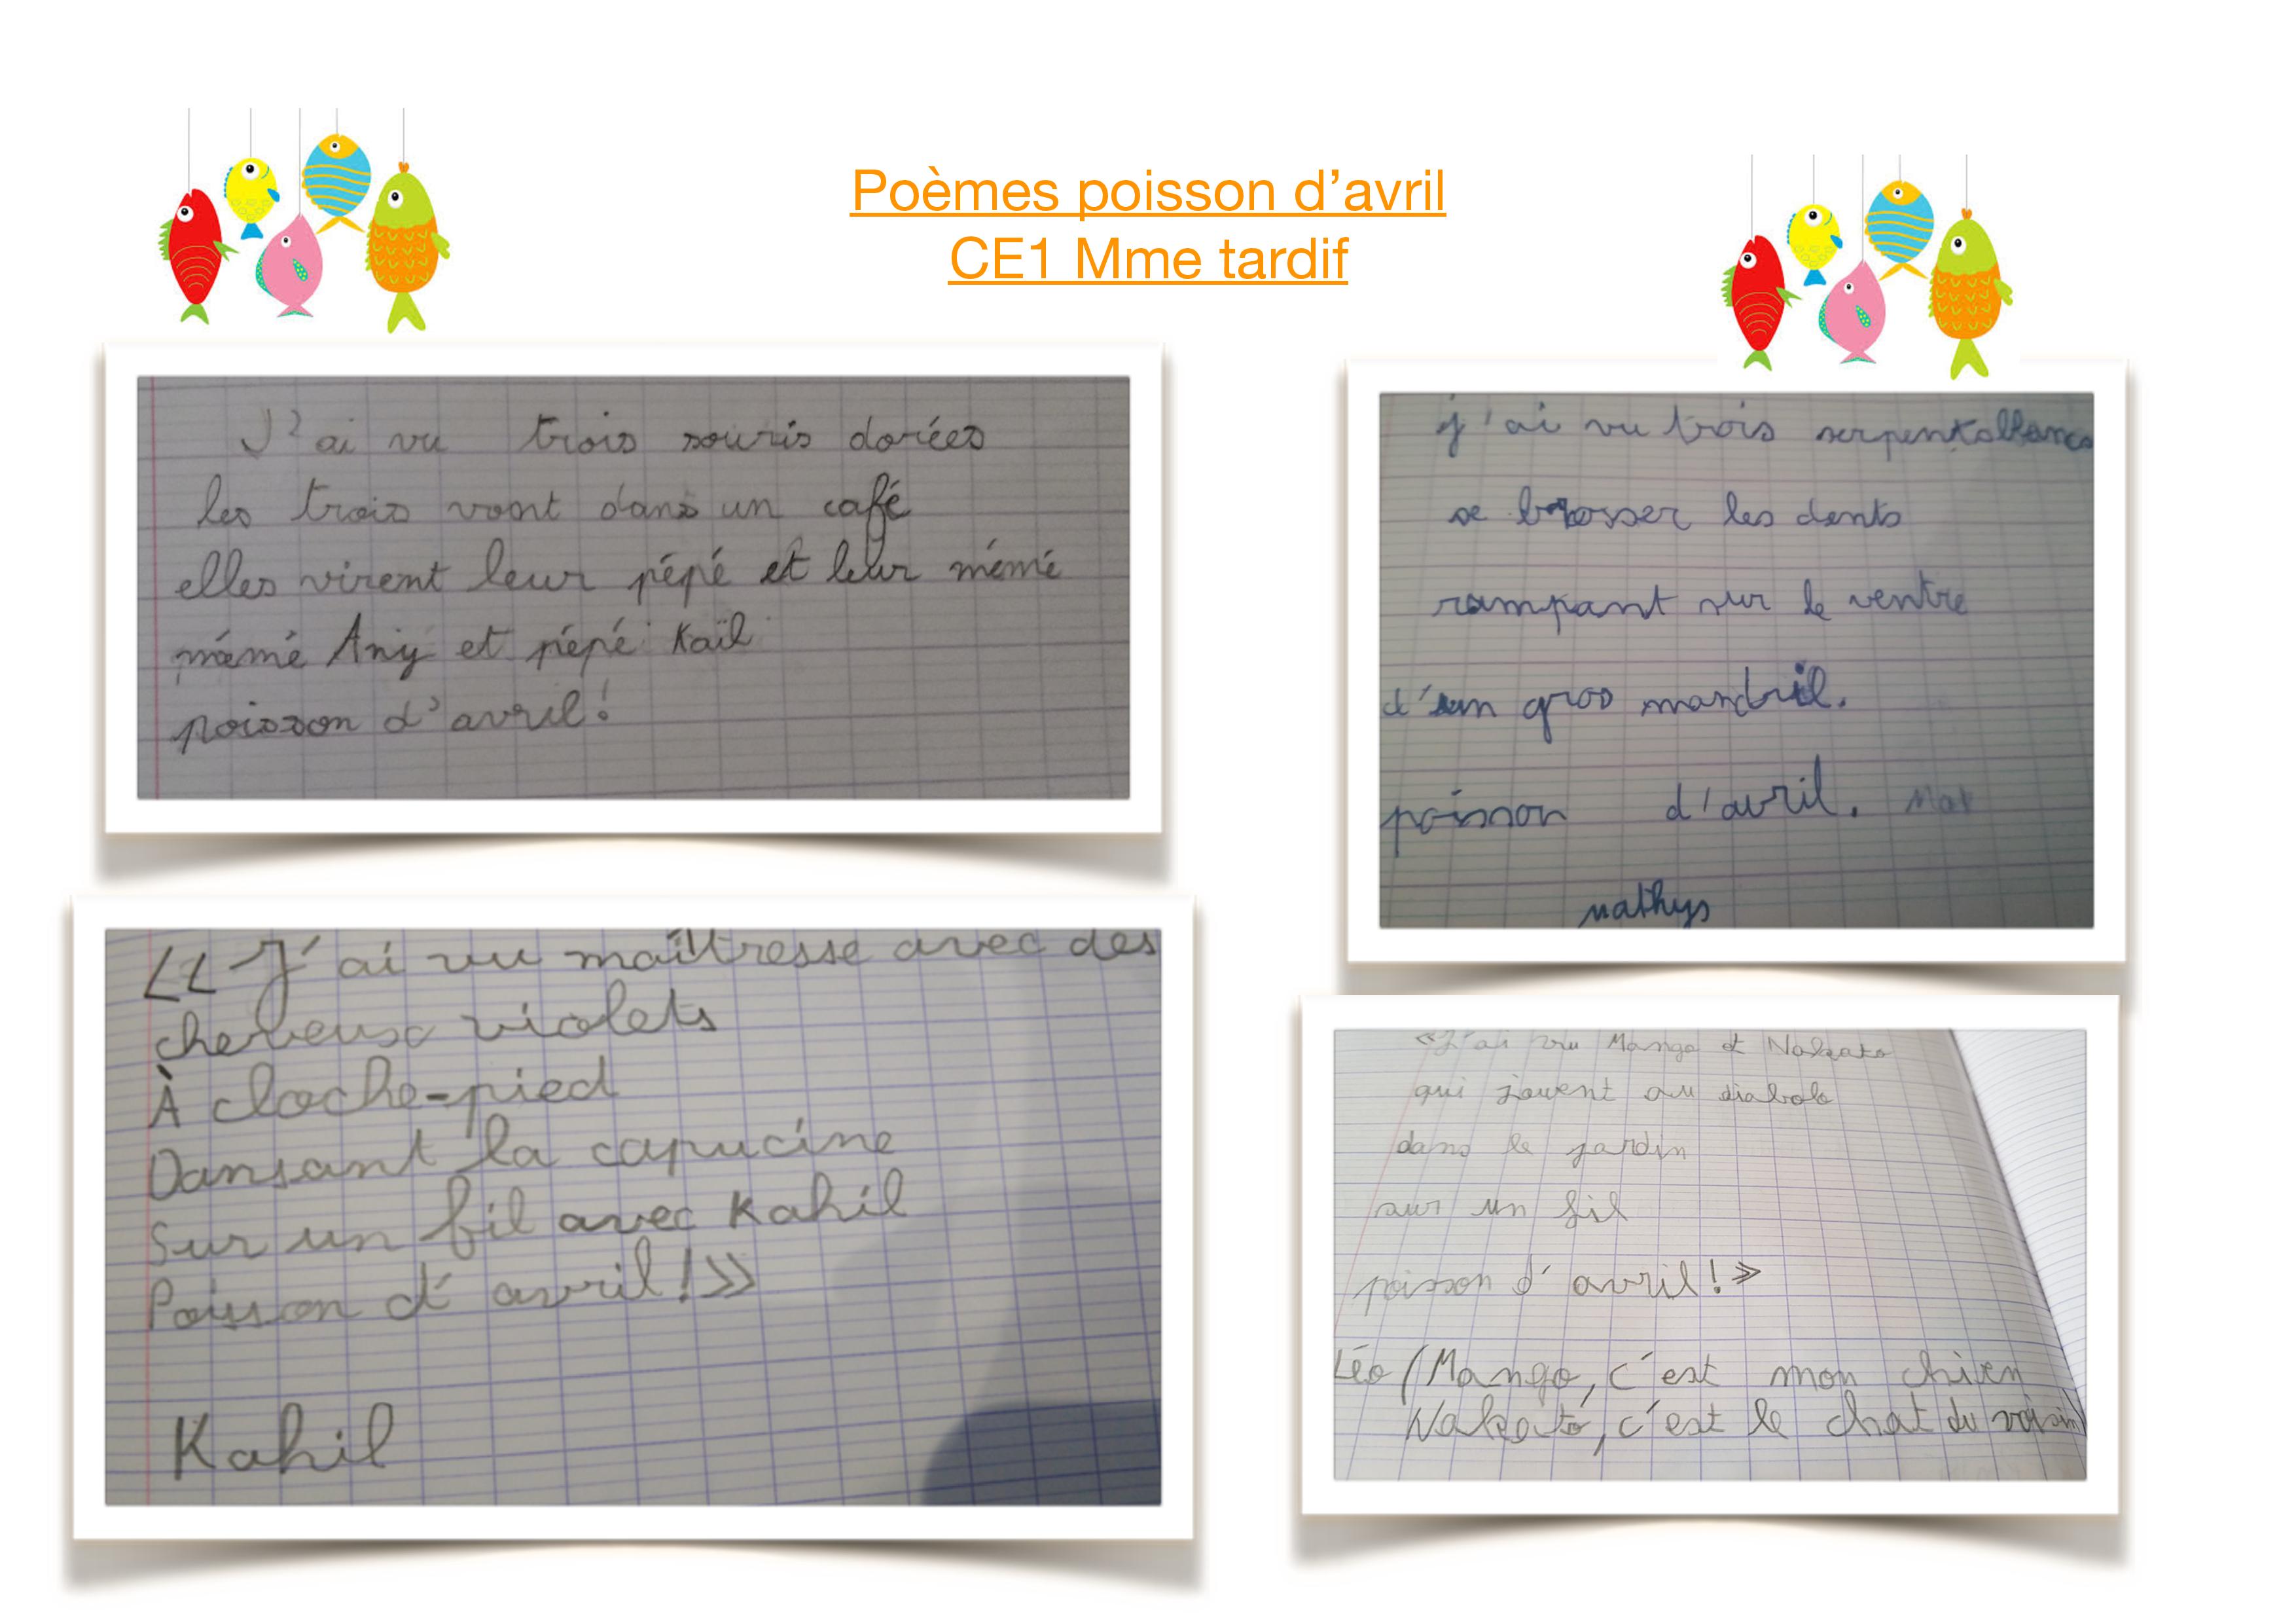 Poèmes poisson d’avril
CE1 Mme tardif
J'ai vu trois souris dorées
les trois vont dans un café
elles virent leur pépé et leur mémé
mémé Any et pépé Kaïl
poisson d'avril!
j'ai vu trois
se brosser les dents
rampant sur le ventre
d'un gros mandril.
poisson d'avril. Mat
mathys
«J'ai vu maîtresse avec des
cheveux violets
À cloche-pied
Dansant la capucine
Sur un fil avec Kahil
Poisson d'avril!»
Kahil
«J'ai vu Mango et Nakato
qui jouent au diabolo
dans le jardin
sur un fil
poisson d'avril!»
Léo (Mango, c'est mon chien
Nakato, c'est le chat du voisin